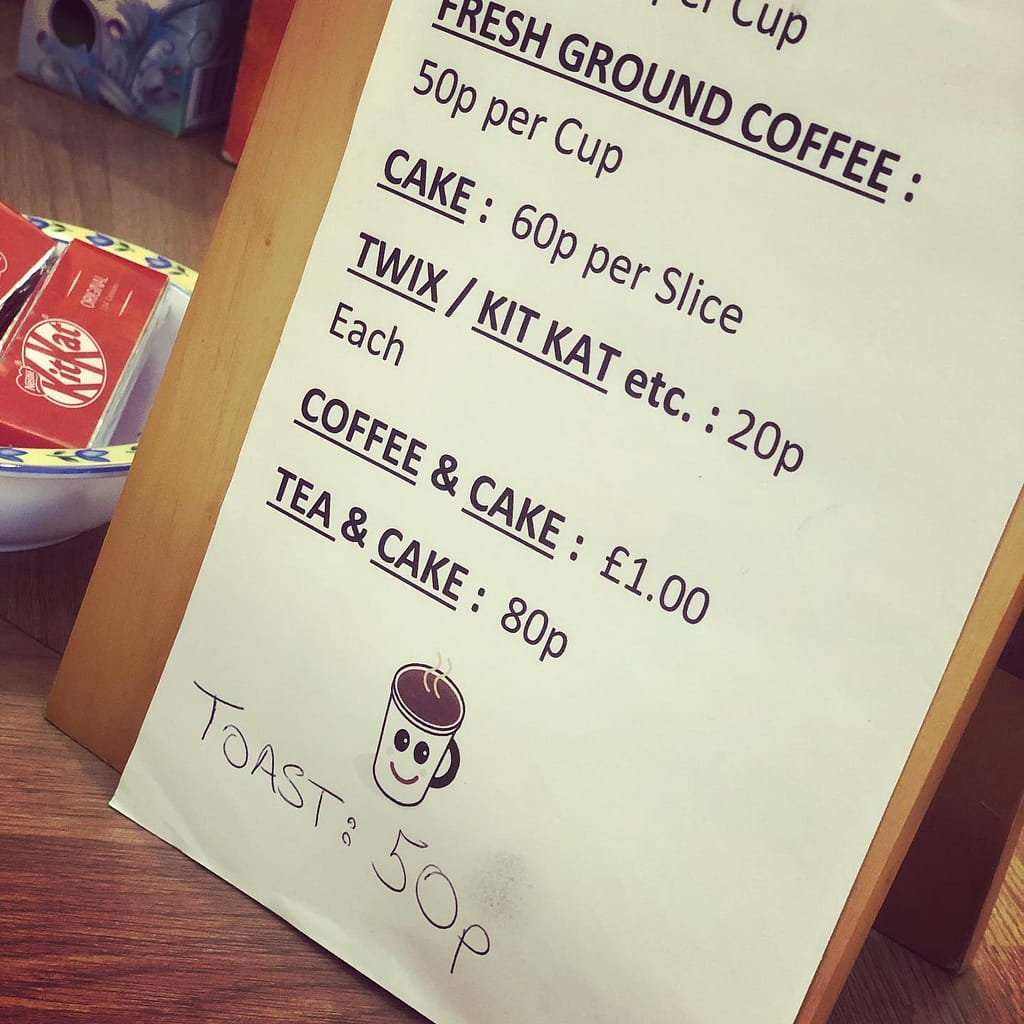 per Cup
FRESH GROUND COFFEE :
50p per Cup
CAKE : 60p per Slice
TWIX / KIT KAT etc. : 20p
Each
COFFEE & CAKE : £1.00
TEA & CAKE : 80p
TOAST: 50p
ORIGINAL
Nestlé
KitKat